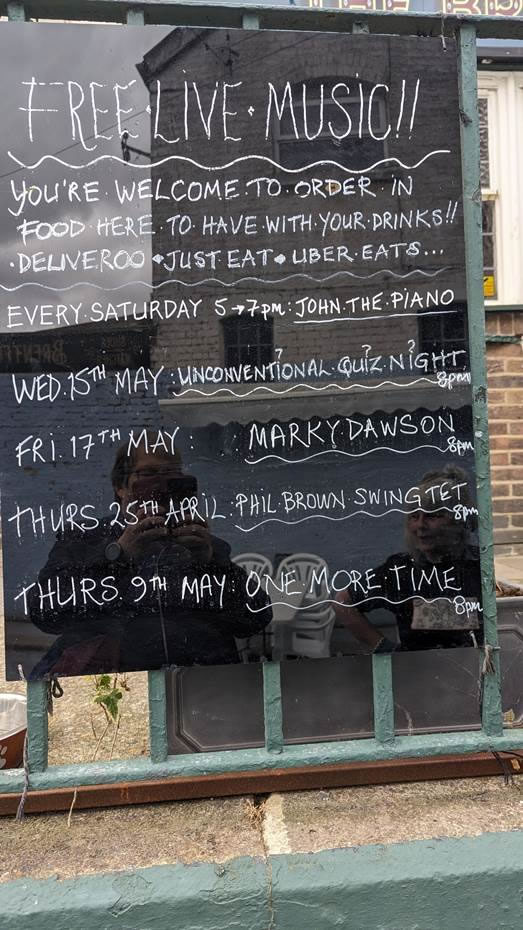 FREE·LIVE·MUSIC!!
YOU'RE·WELCOME·TO·ORDER·IN
FOOD·HERE·TO·HAVE·WITH·YOUR·DRINKS!!
·DELIVEROO·JUST EAT·UBER·EATS...
EVERY·SATURDAY 5→7pm:JOHN·THE·PIANO
WED.15TH MAY:UNCONVENTIONAL·QUIZ·NIGHT
???
8pm
FRI.17TH MAY: MARKYDAWSON
8pm
THURS.25TH APRIL:PHIL·BROWN·SWINGTET
8pm
THURS.9TH MAY:ONE·MORE·TIME
8pm